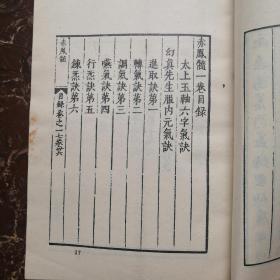 赤鳳髓一卷目録
太上玉軸六字氣訣
幻真先生服内元氣訣
進取訣第一
轉氣訣第二
調氣訣第三
嚥氣訣第四
行炁訣第五
鍊炁訣第六
赤鳳髓
目録
27